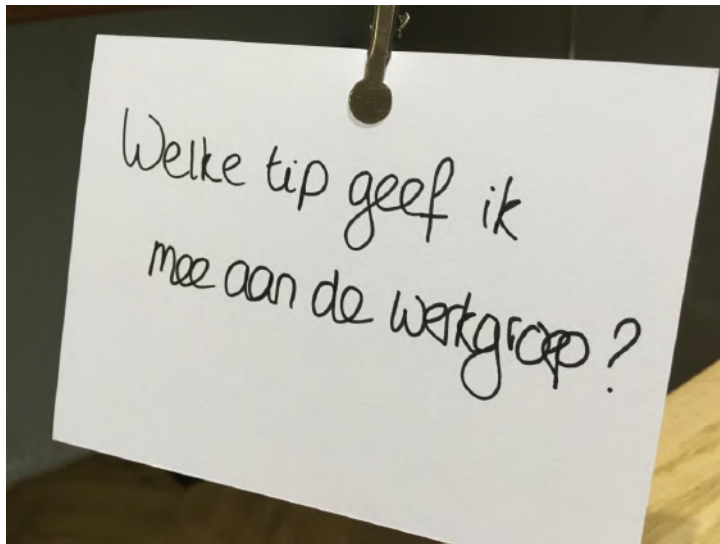 Welke tip geef ik
mee aan de werkgroep?